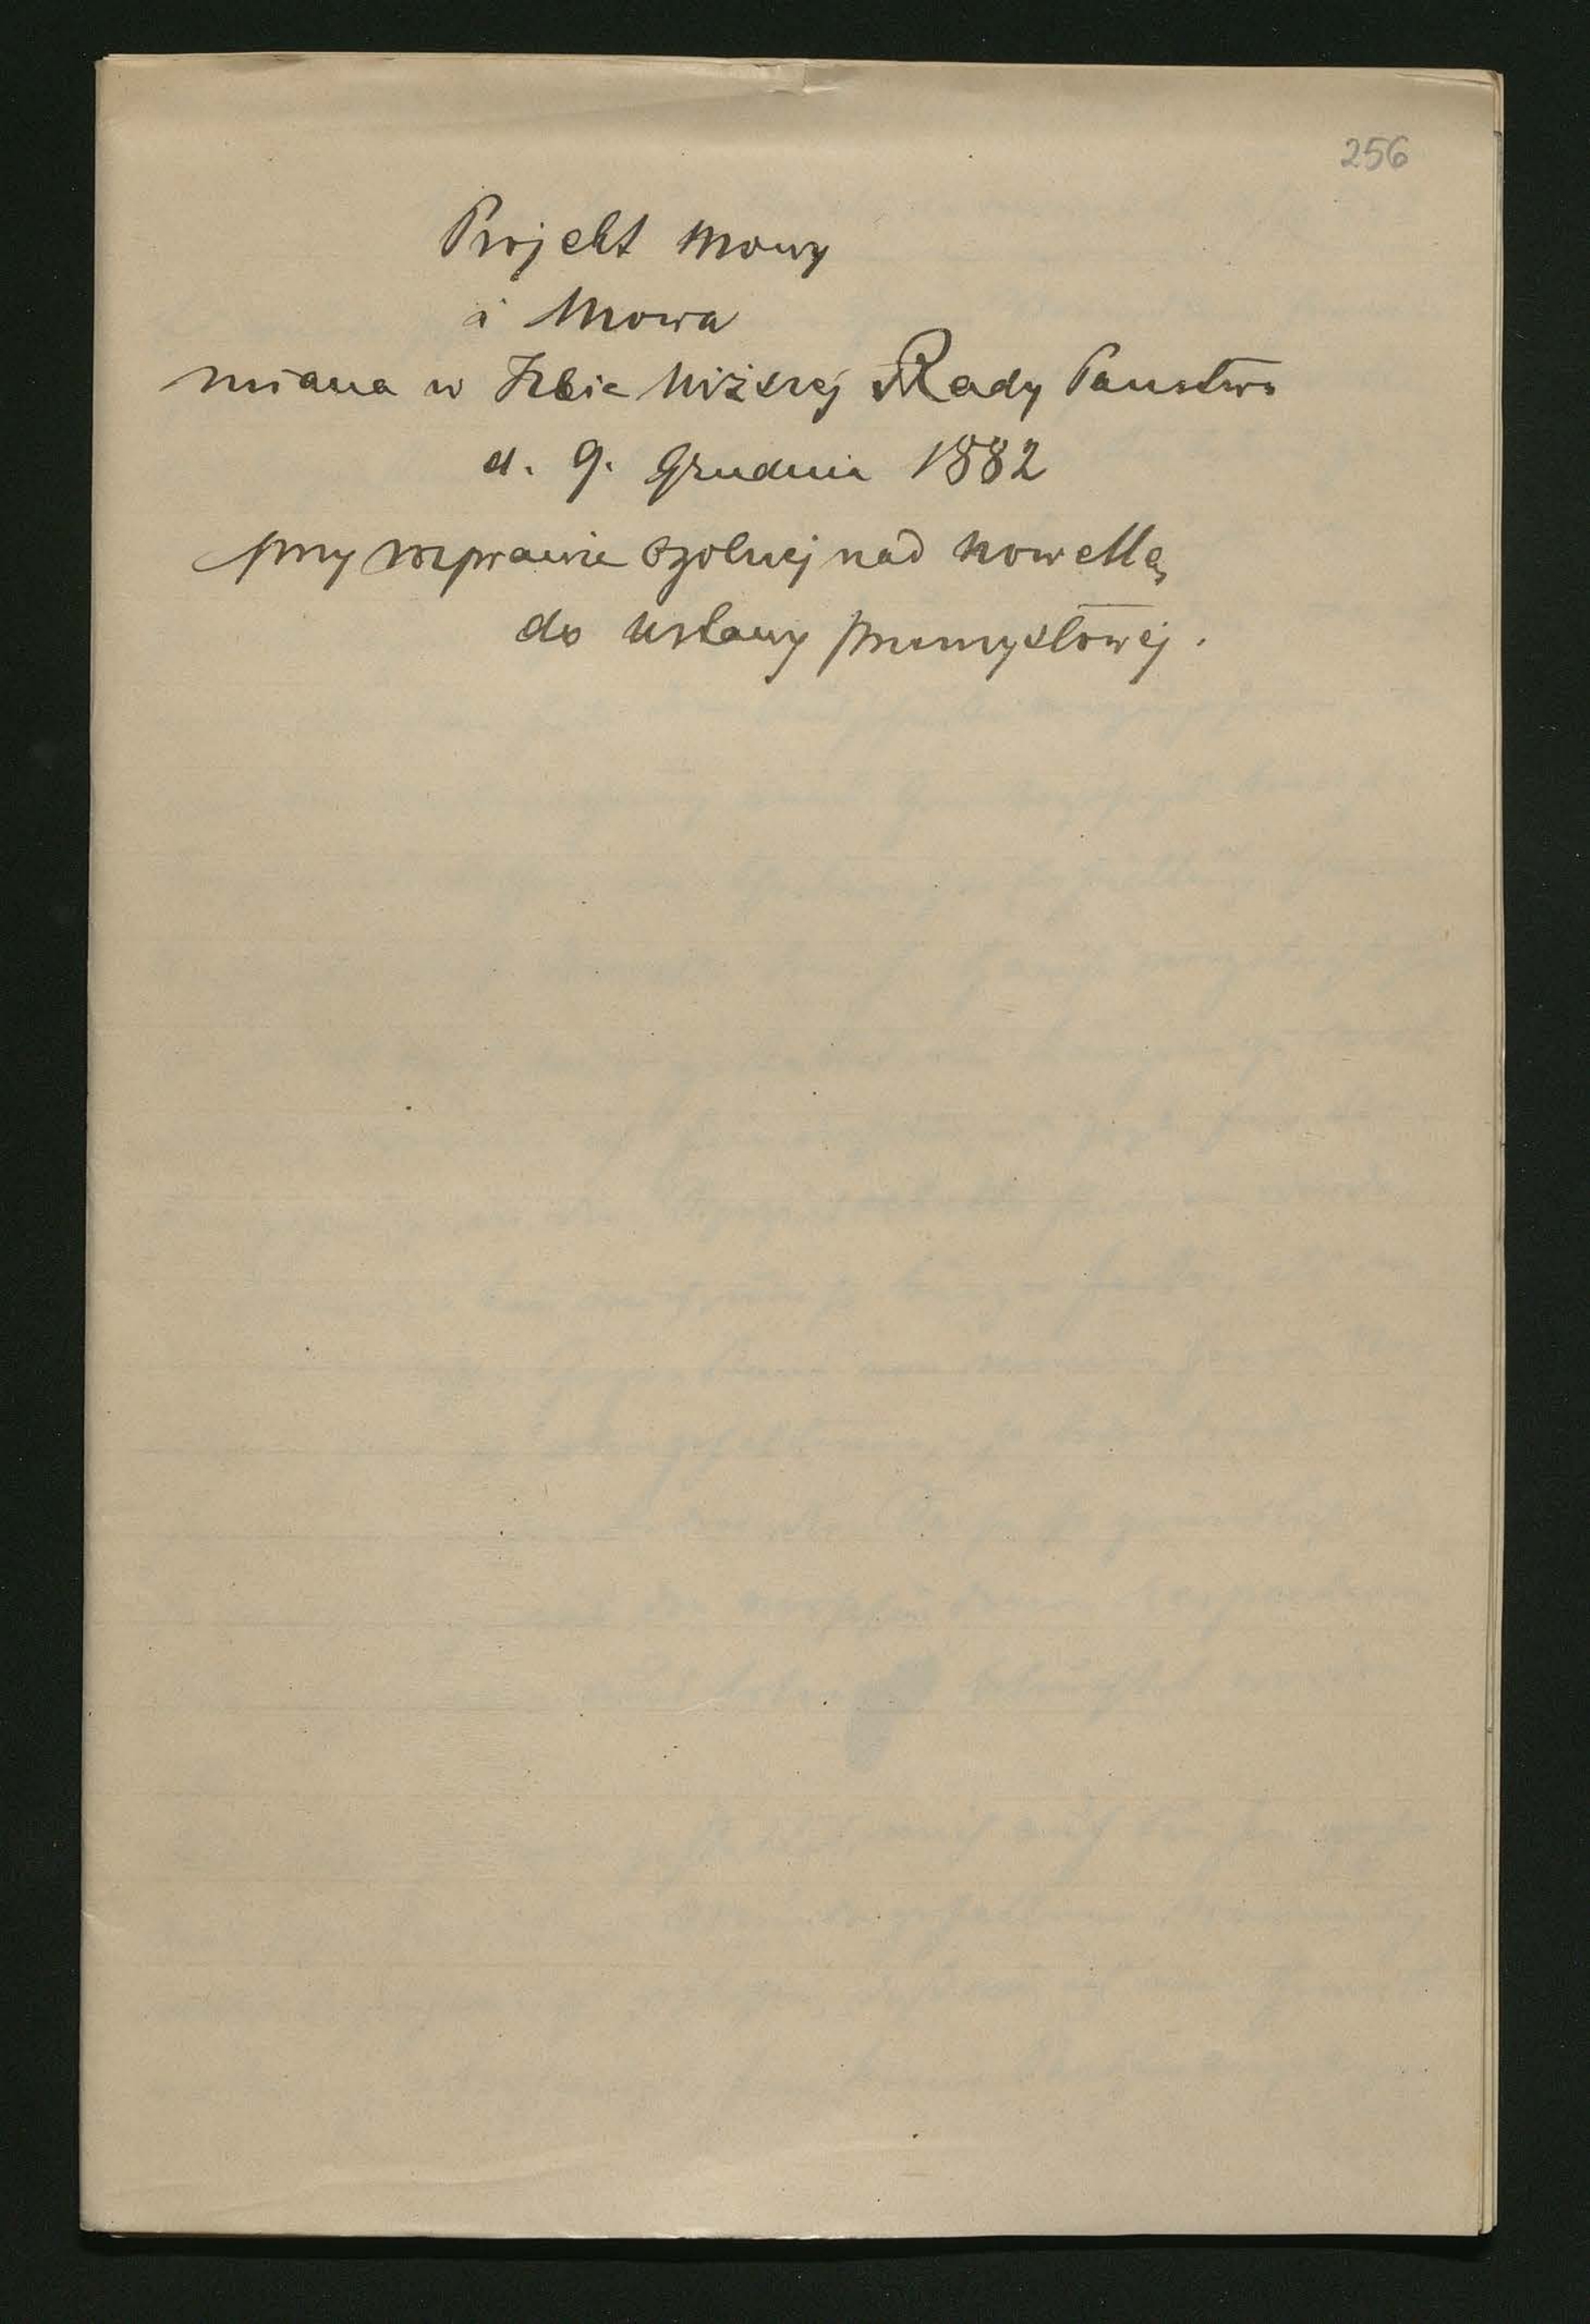 256
Projekt Mowy
i Mowa
miana w Izbie Niższej Rady Państwa
d. 9. Grudnia 1882
przy rozprawie ogólnej nad nowellą
do ustawy przemysłowej.